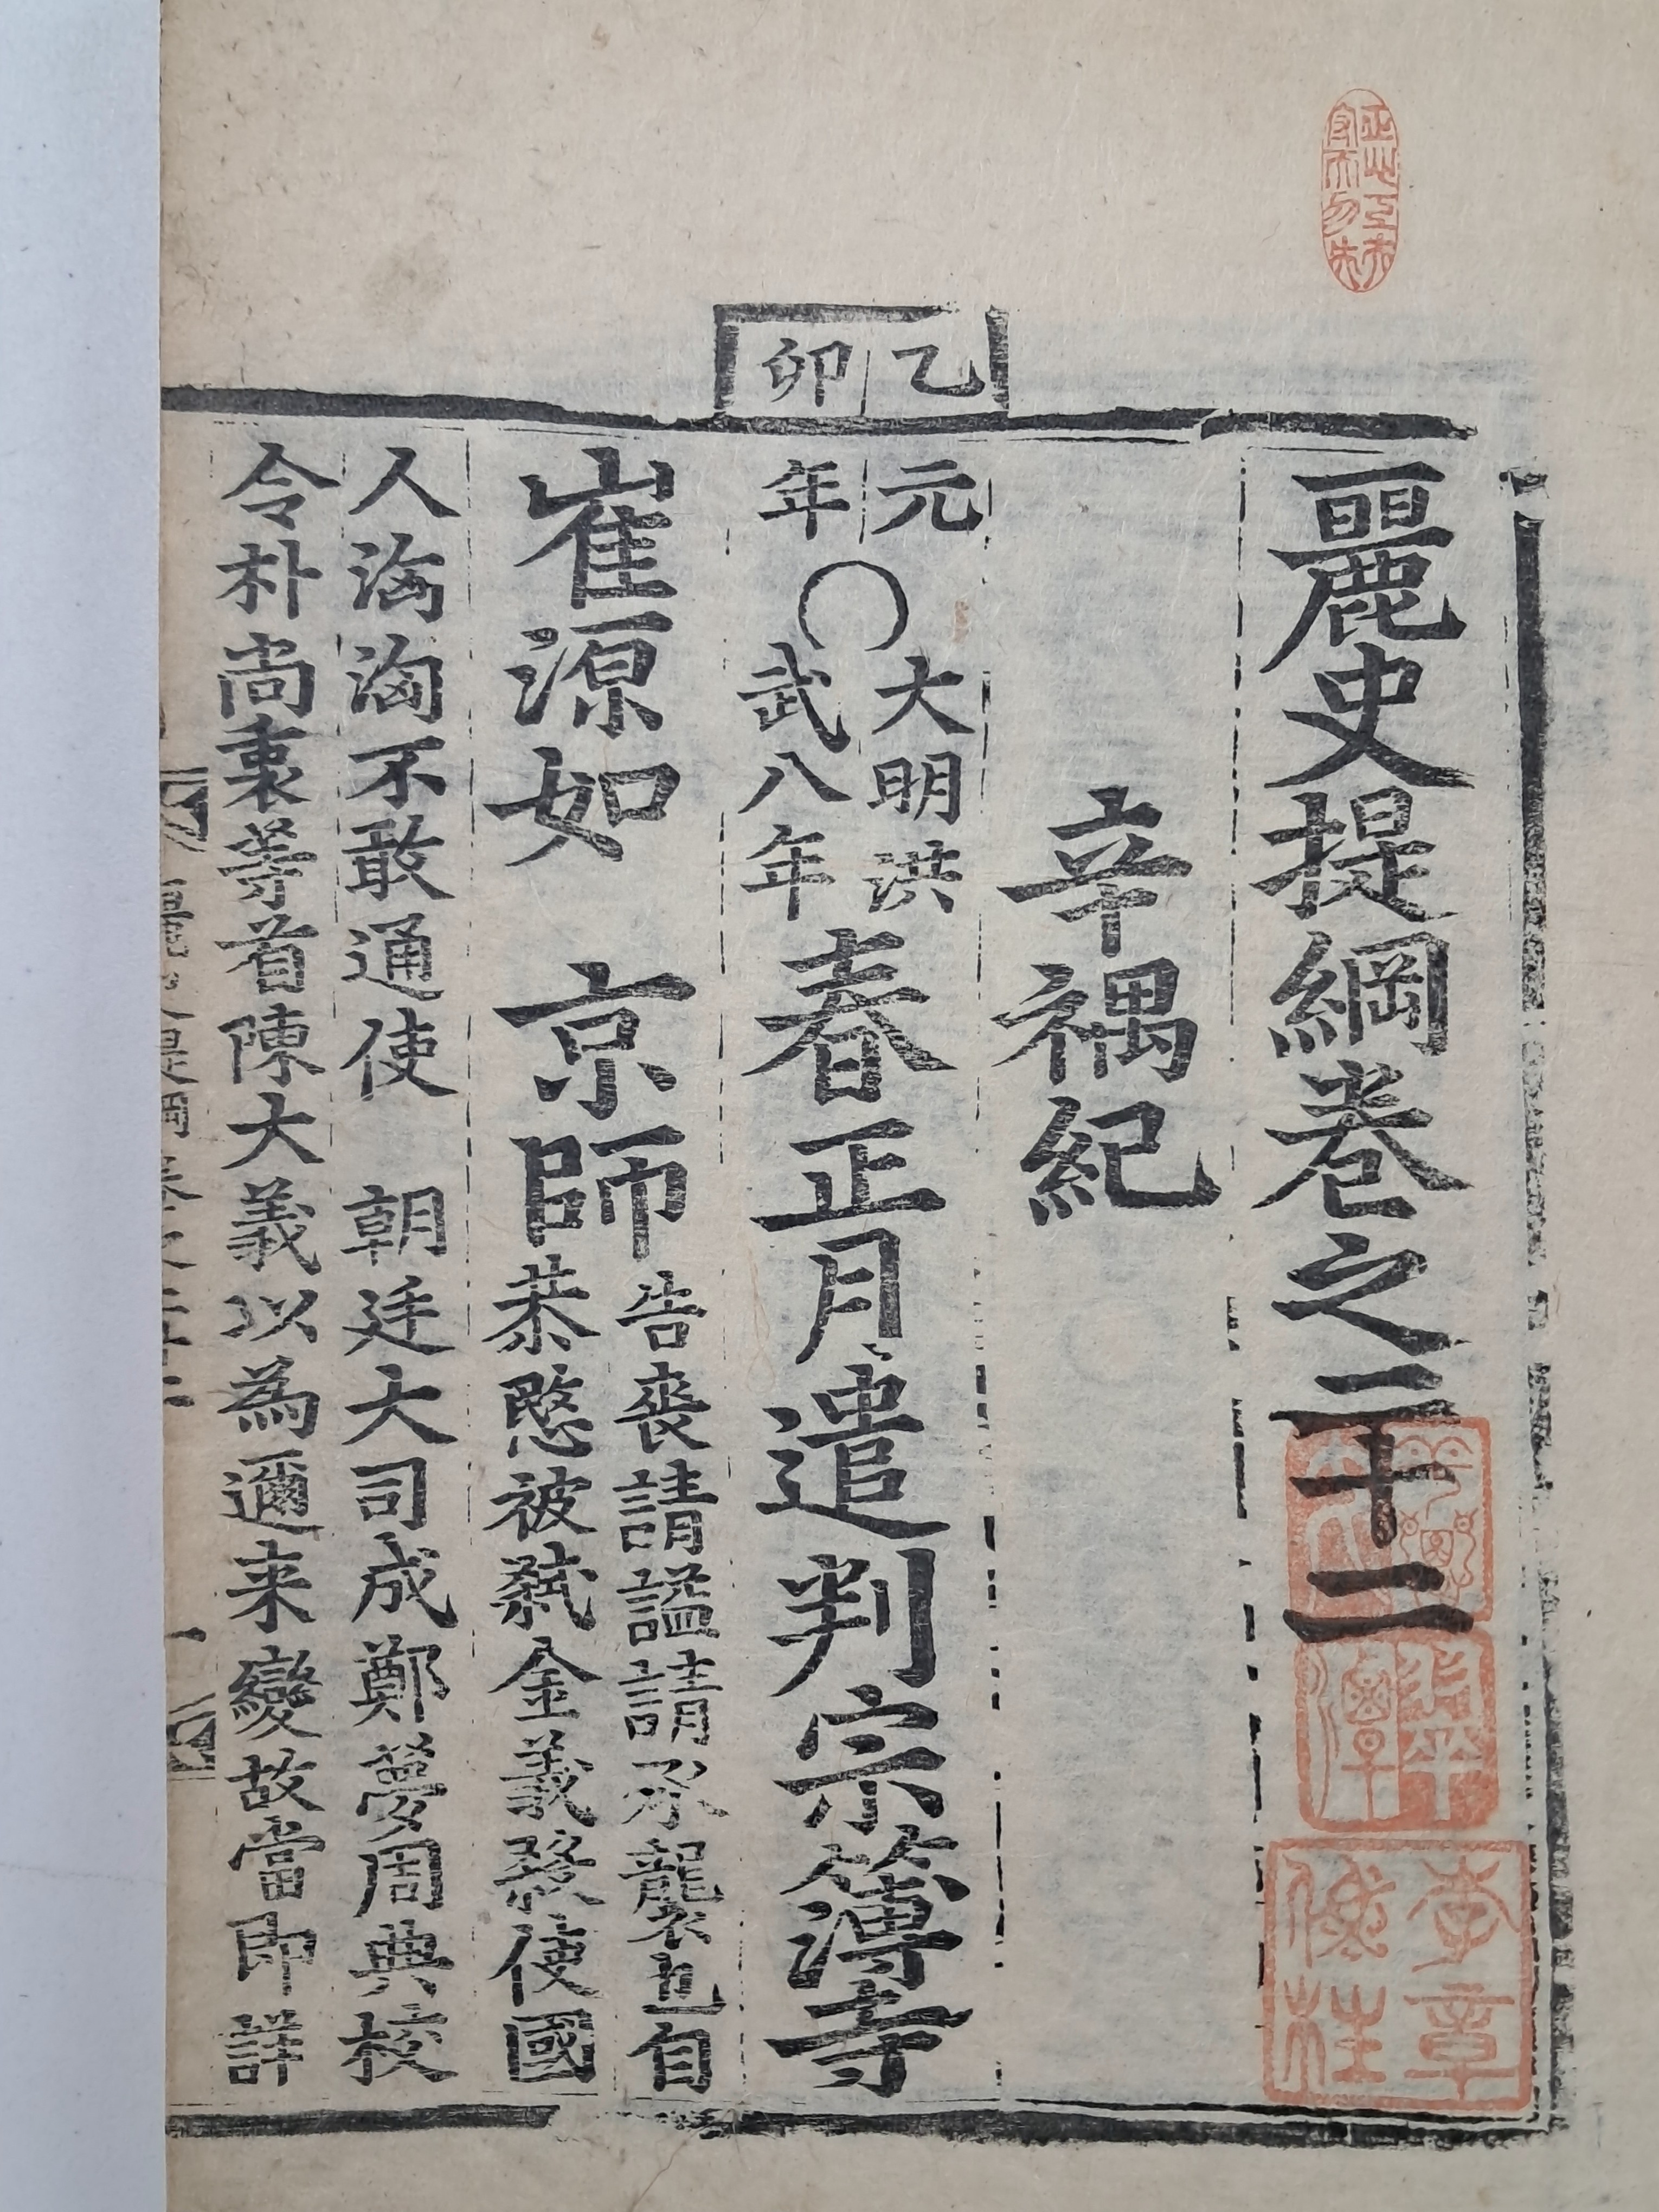 麗史提綱卷之二十二
辛禑紀
乙卯
元年○大明洪武八年春正月遣判宗簿寺
崔源如 京師告喪請謚請承襲也自
恭愍被弑金義殺使國
人洶洶不敢通使 朝廷大司成鄭夢周典校
令朴尚衷等首陳大義以為邇来變故當即詳
李章